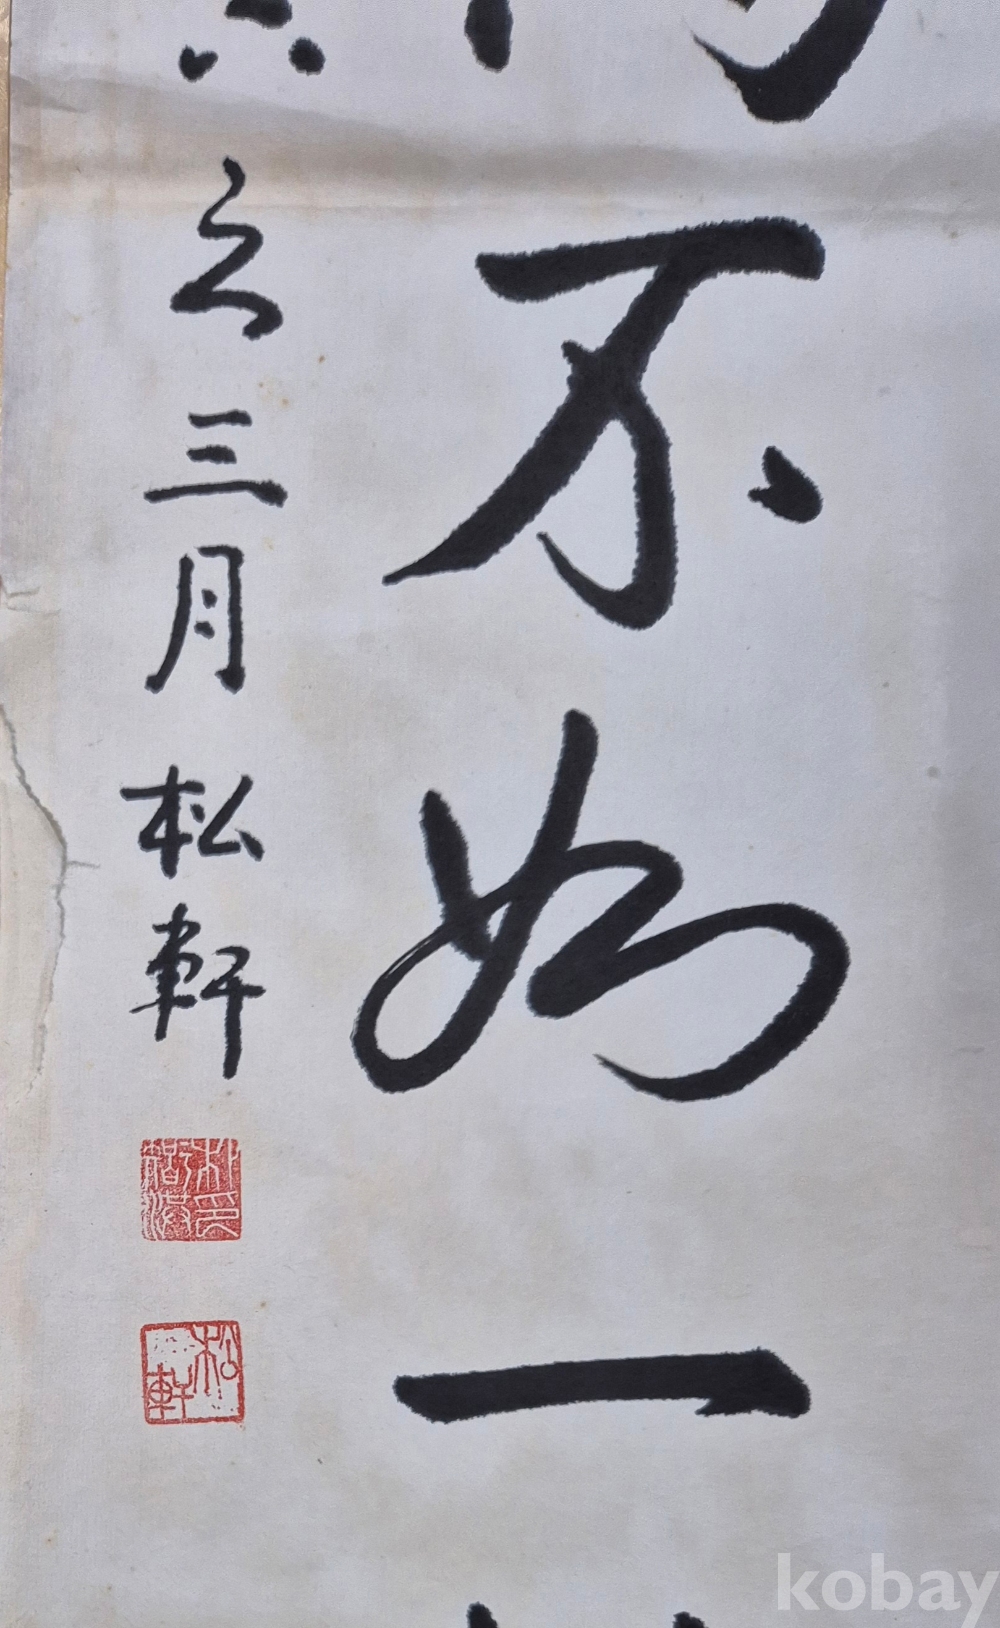 不如一
之三月松軒
朴印
松軒
kobay